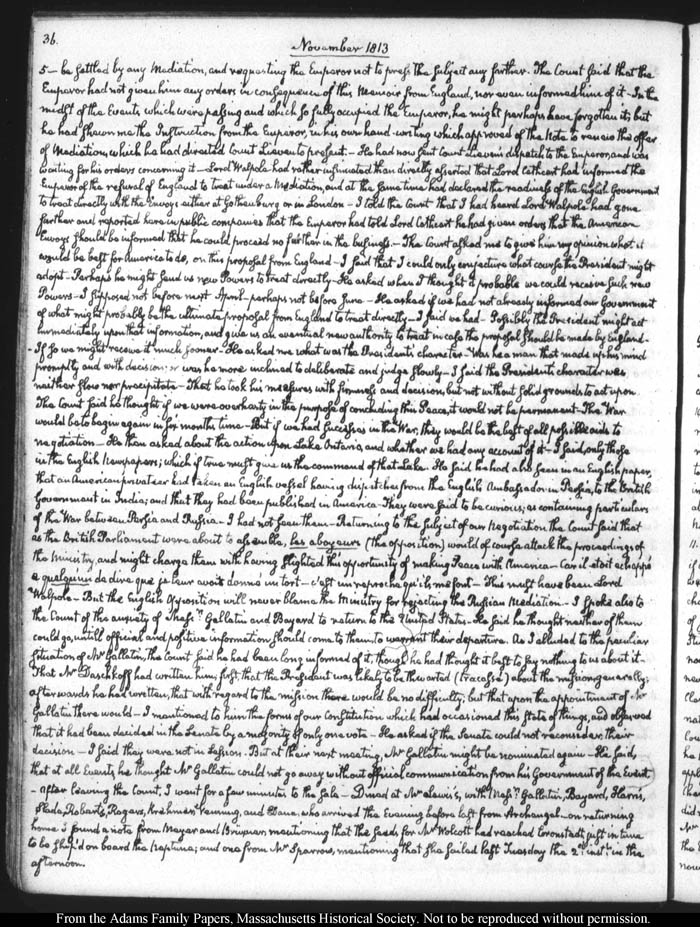 36.
November 1813
5 — be settled by any Mediation, and requesting the Emperor not to press the subject any further. The Count said that the
Emperor had not given him any orders in consequence of this Memoir from England, nor even informed him of it — In the
midst of the Events which were passing and which so fully occupied the Emperor, he might perhaps have forgotten it; but
he had shewn me the Instruction from the Emperor, in his own hand-writing which approved of the Note to renew the offer
of Mediation, which he had directed Count Lieven to present — He had now sent Count Lieven's dispatch to the Emperor, and was
waiting for his orders concerning it — Lord Walpole had rather insinuated than directly asserted that Lord Cathcart had informed the
Emperor of the refusal of England to treat under a Mediation, and at the same time had declared the readiness of the English Government
to treat directly with the Envoys either at Gothenburg or in London — I told the Count that I had heard Lord Walpole had gone
further and reported here in public companies that the Emperor had told Lord Cathcart he had given orders that the American
Envoys should be informed that he could proceed no further in the business. — The Count asked me to give him my opinion what it
would be best for America to do, on this proposal from England — I said that I could only conjecture what course the President might
adopt — Perhaps he might send us new Powers to treat directly — He asked when I thought it probable we could receive such new
Powers — I supposed not before next April — perhaps not before June — He asked if we had not already informed our Government
of what might probably be the ultimate proposal from England to treat directly — I said we had — Possibly the President might act
immediately upon that information, and give us an eventual new authority to treat in case the proposal should be made by England —
If so we might receive it much sooner — He asked me what was the President's character — Was he a man that made up his mind
promptly and with decision; or was he more inclined to deliberate and judge slowly — I said the President's character was
neither slow nor precipitate — That he took his measures with firmness and decision, but not without solid grounds to act upon.
The Count said he thought if we were over hasty in the purpose of concluding this Peace, it would not be permanent — The War
would be to begin again in six months time — But if we had successes in the War, they would be the best of all possible aids to
negotiation — He then asked about the action upon Lake Ontario, and whether we had any account of it — I said, only those
in the English Newspapers; which if true must give us the command of that Lake. He said he had also seen in an English paper,
that an American privateer had taken an English vessel having dispatches from the English Ambassador in Persia, to the British
Government in India; and that they had been published in America — They were said to be curious; as containing particulars
of the War between Persia and Russia — I had not seen them — Returning to the subject of our Negotiation the Count said that
as the British Parliament were about to assemble, les aboyeurs (the opposition) would of course attack the proceedings of
the Ministry, and might charge them with having slighted this opportunity of making Peace with America — Car il étoit echappé
a quelqu'un de dire que je leur avois donné un tort — c'est un reproche qu'ils me font — This must have been Lord
Walpole — But the English Opposition will never blame the Ministry for rejecting the Russian Mediation — I spoke also to
the Count of the anxiety of Messrs. Gallatin and Bayard to return to the United States — He said he thought neither of them
could go, until official and positive information should come to them to warrant their departure. As I alluded to the peculiar
situation of Mr. Gallatin, the Count said he had been long informed of it, though he had thought it best to say nothing to us about it —
That Mr. Daschkoff had written him; first, that the President was likely to be thwarted (tracassé) about the mission generally;
afterwards he had written, that with regard to the mission there would be no difficulty; but that upon the appointment of Mr.
Gallatin there would — I mentioned to him the forms of our Constitution which had occasioned this state of things, and observed
that it had been decided in the Senate by a majority of only one vote — He asked if the Senate could not reconsider their
decision — I said they were not in session — But at their next meeting, Mr. Gallatin might be nominated again — He said,
that at all Events he thought Mr. Gallatin could not go away without official communication from his Government of the Event
— After leaving the Count, I went for a few minutes to the Sale — Dined at Mr. Lewis's, with Messrs. Gallatin, Bayard, Harris,
Slade, Roberts, Rogers, Krehmer, Venning, and Dana, who arrived the Evening before last from Archangel — on returning
home I found a note from Meyer and Bruxner mentioning that the seeds for Mr. Wolcott had reached Cronstadt just in time
to be ship'd on board the Neptune; and one from Mr. Sparrow, mentioning that she sailed last Tuesday the 2d. inst. in the
afternoon.
From the Adams Family Papers, Massachusetts Historical Society. Not to be reproduced without permission.